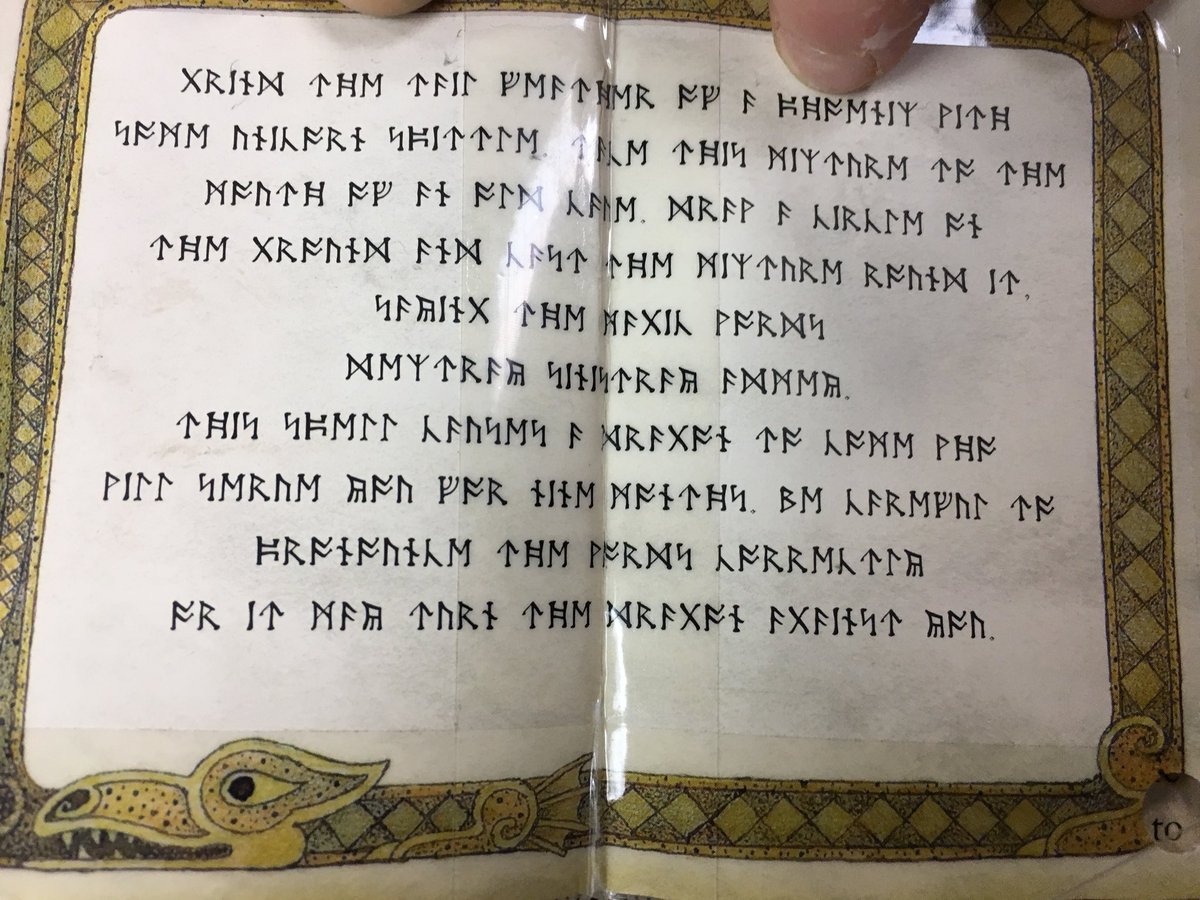 ᚷᚱᛁᚾᛞ ᛏᚻᛖ ᛏᚨᛁᛚ ᚠᛖᚨᛏᚻᛖᚱ ᚩᚠ ᚨ ᛈᚻᚩᛖᚾᛁᛉ ᚹᛁᛏᚻ
ᛋᚩᛗᛖ ᚢᚾᛁᚳᚩᚱᚾ ᛋᛈᛁᛏᛏᛚᛖ. ᛏᚨᚳᛖ ᛏᚻᛁᛋ ᛗᛁᛉᛏᚢᚱᛖ ᛏᚩ ᛏᚻᛖ
ᛗᚩᚢᛏᚻ ᚩᚠ ᚨᚾ ᚩᛚᛞ ᚳᚨᚢᛖ. ᛞᚱᚨᚹ ᚨ ᚳᛁᚱᚳᛚᛖ ᚩᚾ
ᛏᚻᛖ ᚷᚱᚩᚢᚾᛞ ᚨᚾᛞ ᚳᚨᛋᛏ ᛏᚻᛖ ᛗᛁᛉᛏᚢᚱᛖ ᚱᚩᚢᚾᛞ ᛁᛏ,
ᛋᚨᚣᛁᚾᚷ ᛏᚻᛖ ᛗᚨᚷᛁᚳ ᚹᚩᚱᛞᛋ
ᛞᛖᛉᛏᚱᚨᚣ ᛋᛁᚾᛁᛋᛏᚱᚨᚣ ᚨᛞᛗᛖᚣ.
ᛏᚻᛁᛋ ᛋᛈᛖᛚᛚ ᚳᚨᚢᛋᛖᛋ ᚨ ᛞᚱᚨᚷᚩᚾ ᛏᚩ ᚳᚩᛗᛖ ᚹᚻᚩ
ᚹᛁᛚᛚ ᛋᛖᚱᚢᛖ ᚣᚩᚢ ᚠᚩᚱ ᚾᛁᚾᛖ ᛗᚩᚾᛏᚻᛋ. ᛒᛖ ᚳᚨᚱᛖᚠᚢᛚ ᛏᚩ
ᛈᚱᚩᚾᚩᚢᚾᚳᛖ ᛏᚻᛖ ᚹᚩᚱᛞᛋ ᚳᚩᚱᚱᛖᚳᛏᛚᚣ
ᚩᚱ ᛁᛏ ᛗᚨᚣ ᛏᚢᚱᚾ ᛏᚻᛖ ᛞᚱᚨᚷᚩᚾ ᚨᚷᚨᛁᚾᛋᛏ ᚣᚩᚢ.
to